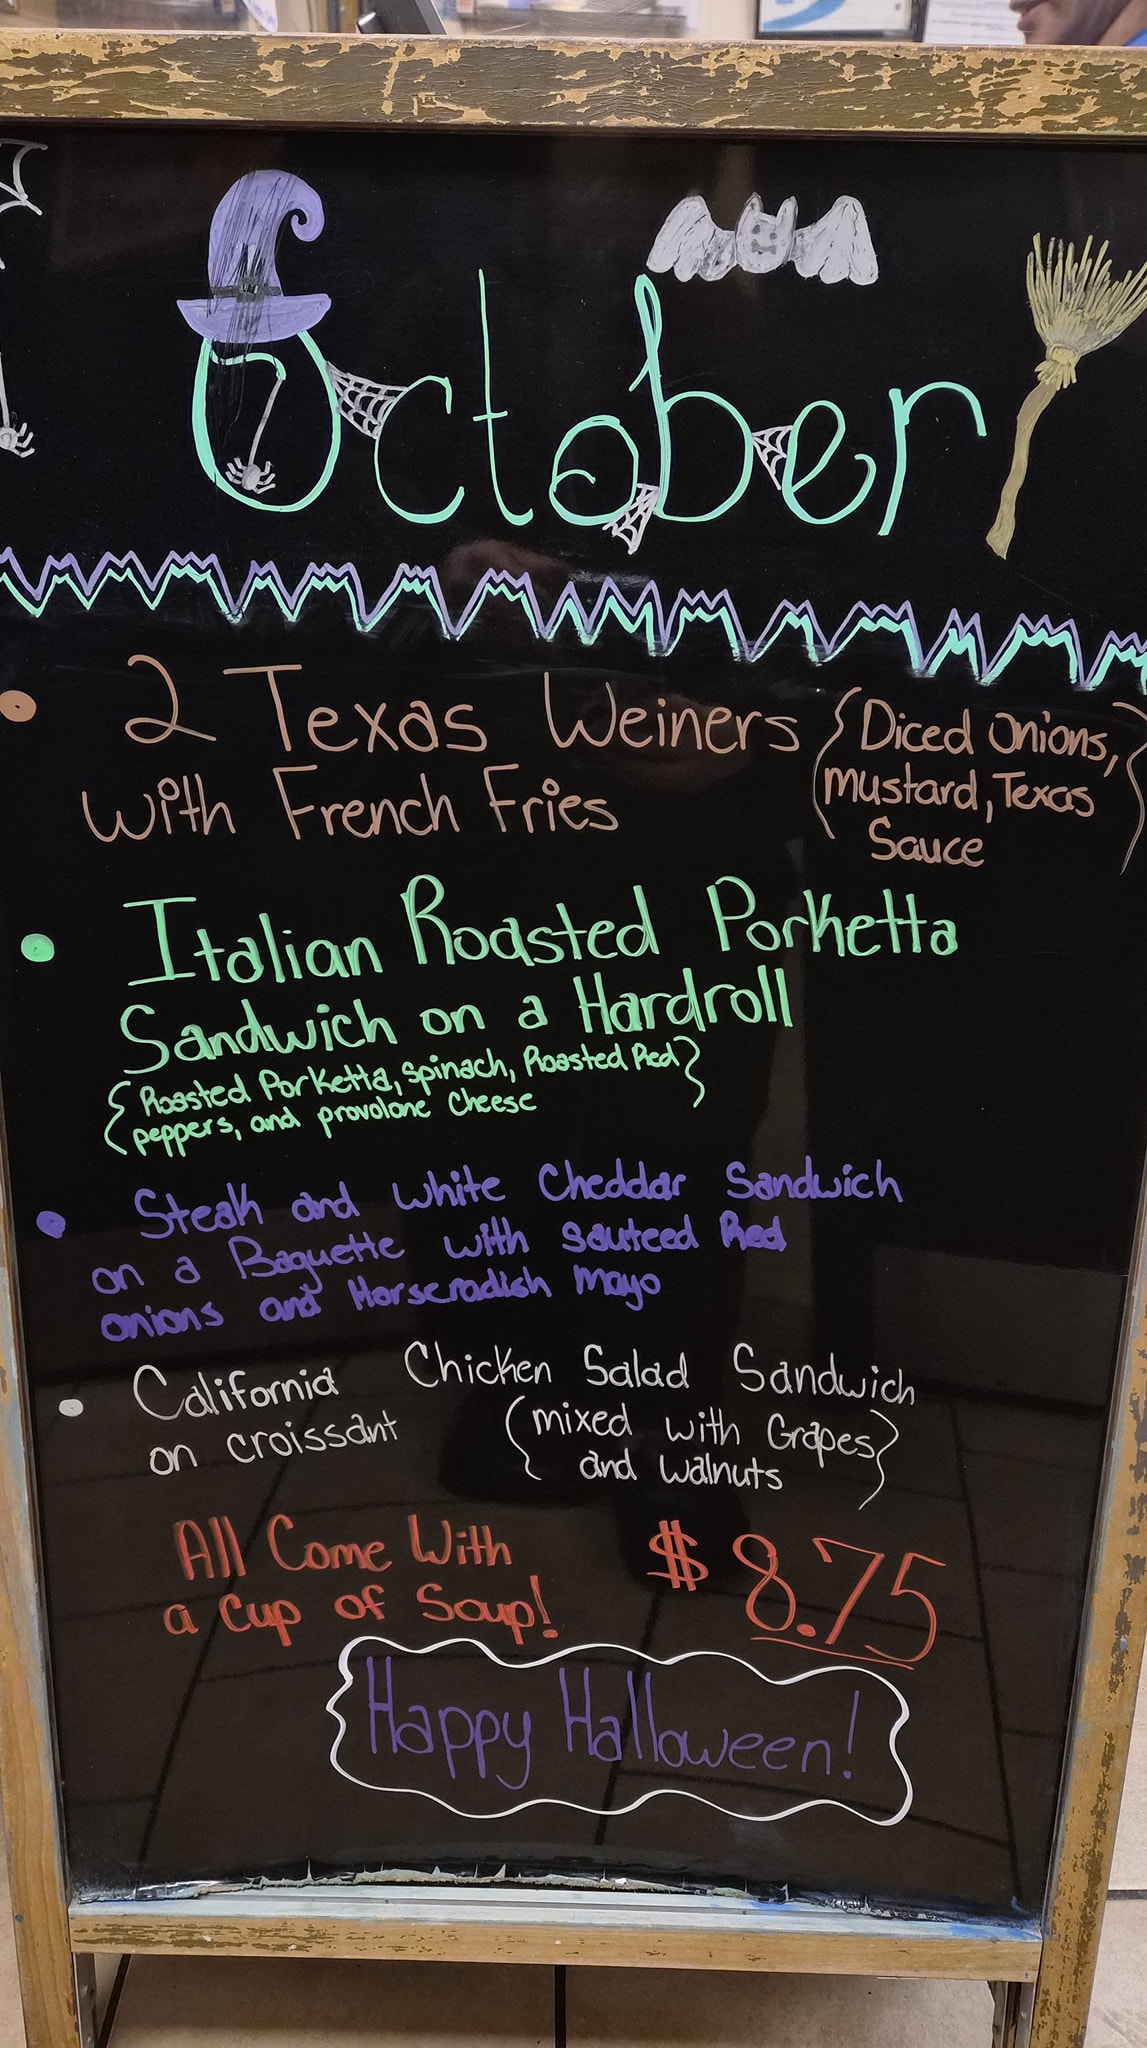 October
• 2 Texas Weiners {Diced Onions,
with French Fries mustard, Texas
Sauce}
• Italian Roasted Porketta
Sandwich on a Hardroll
{Roasted Porketta, spinach, Roasted Red
peppers, and provolone cheese}
• Steak and white Cheddar Sandwich
on a Baguette with sauteed Red
onions and Horseradish mayo
• California Chicken Salad Sandwich
on croissant (mixed with Grapes
and walnuts)
All Come With $8.75
a Cup of Soup!
Happy Halloween!